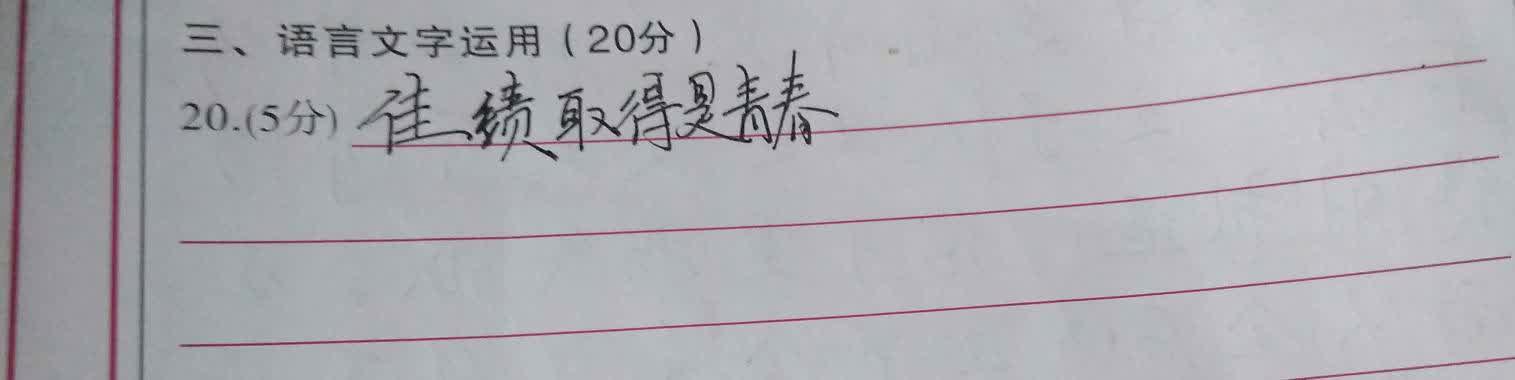 三、语言文字运用（20分）
20.(5分) 佳绩取得是青春